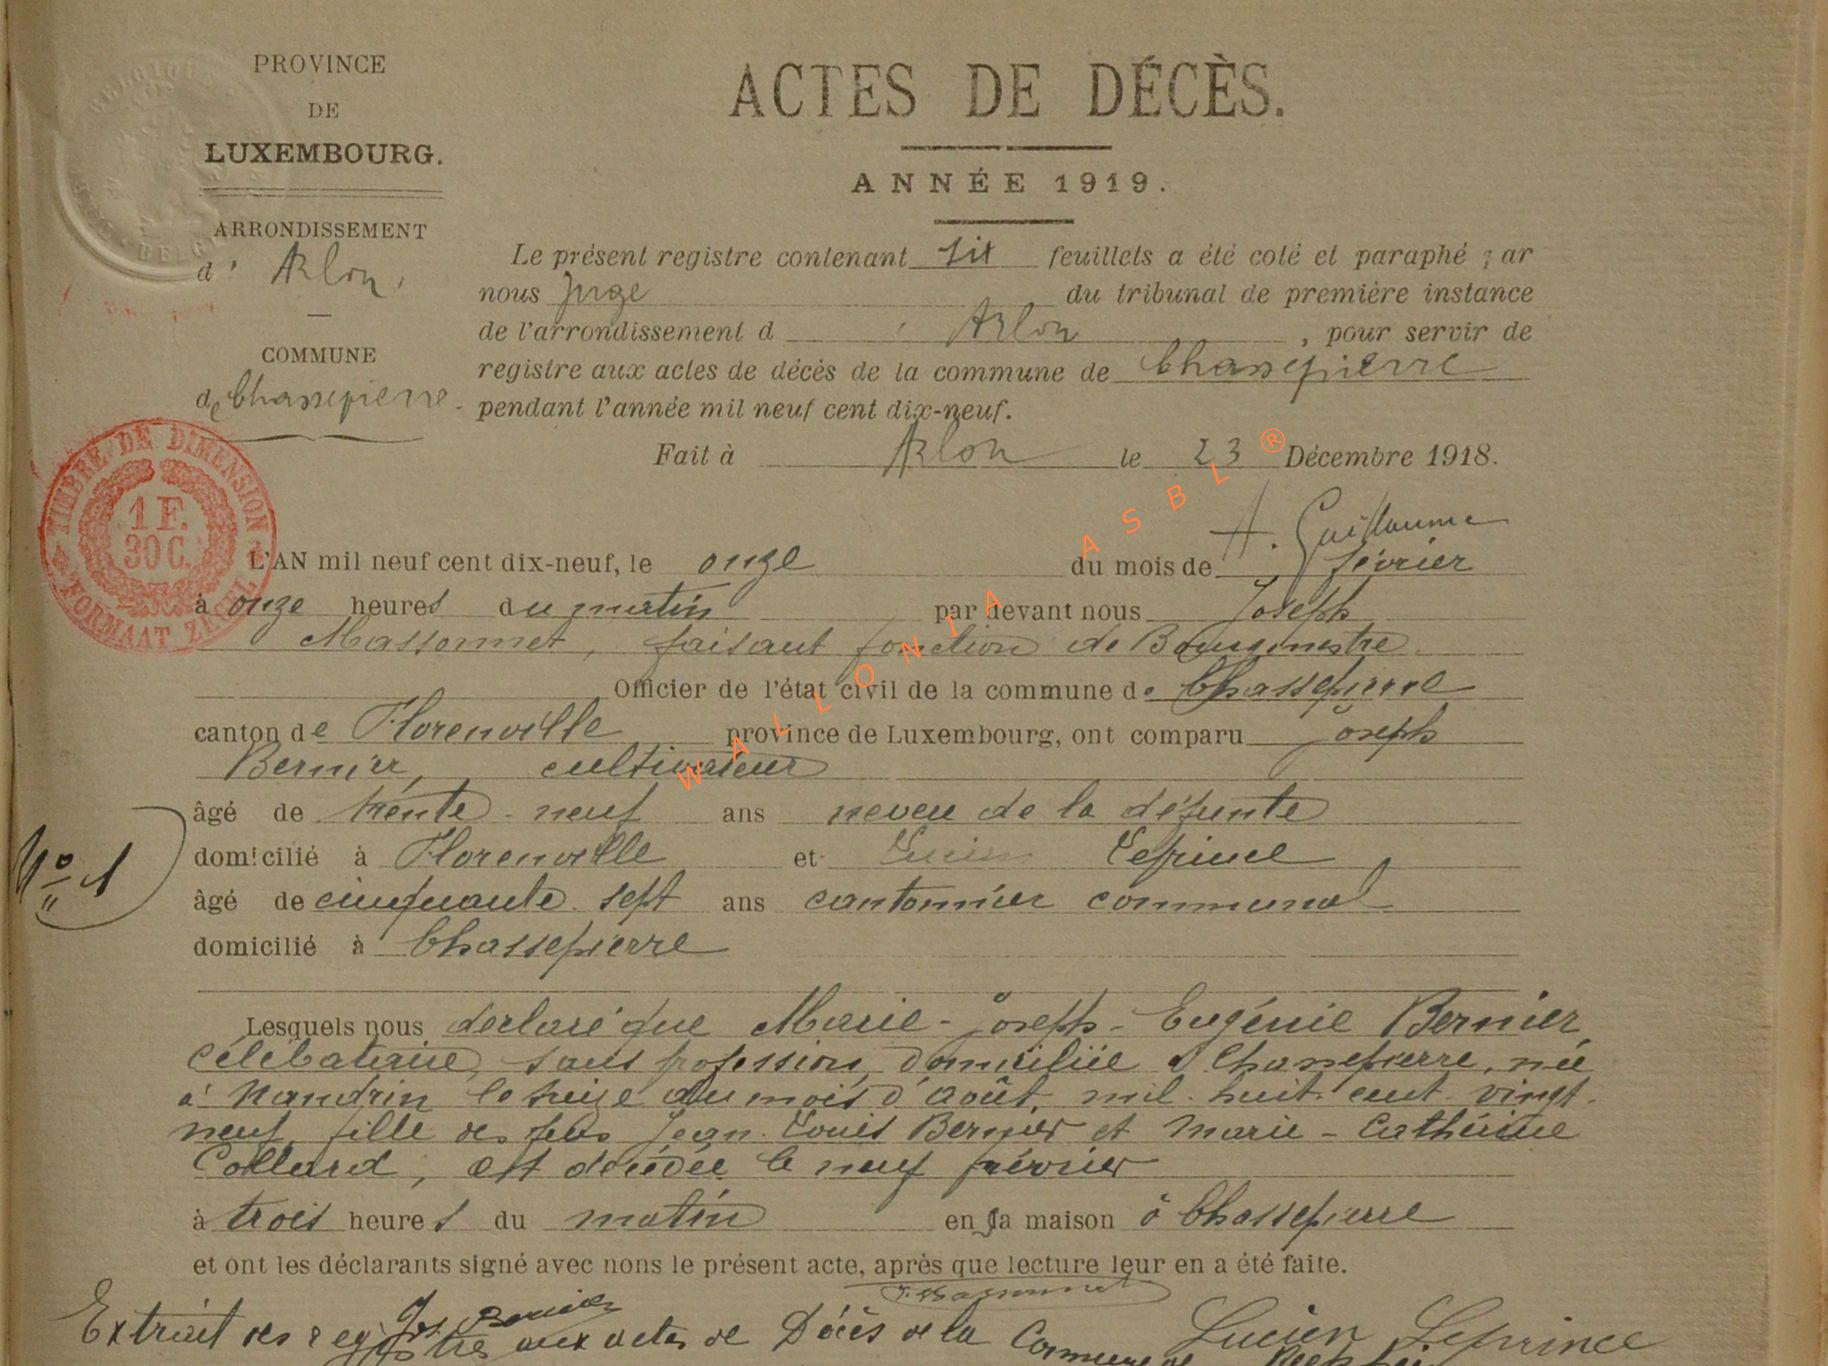 PROVINCE
DE
LUXEMBOURG.
ARRONDISSEMENT
d' Arlon,
COMMUNE
de Chassepierre.
ACTES DE DÉCÈS.
ANNÉE 1919.
Le présent registre contenant six feuillets a été coté et paraphé par
nous Juge du tribunal de première instance
de l'arrondissement d' Arlon, pour servir de
registre aux actes de décès de la commune de Chassepierre
pendant l'année mil neuf cent dix-neuf.
Fait à Arlon le 23 Décembre 1918.
A. Guillaume
TIMBRE DE DIMENSION
1 F.
30 C.
FORMAAT ZEGEL
WALLONIA ASBL ®
L'AN mil neuf cent dix-neuf, le onze du mois de février
à onze heures du matin par devant nous Joseph
Massonnet, faisant fonction de Bourgmestre
Officier de l'état civil de la commune de Chassepierre
canton de Florenville province de Luxembourg, ont comparu Joseph
Bernier, cultivateur
âgé de trente-neuf ans neveu de la défunte
domicilié à Florenville et Lucien Leprince
âgé de cinquante sept ans cantonnier communal
domicilié à Chassepierre
N° 1
Lesquels nous déclaré que Marie-Joseph-Eugénie Bernier
célibataire, sans profession, domiciliée à Chassepierre, née
à Nandrin le treize du mois d'août, mil huit cent vingt
neuf, fille des feus Jean-Louis Bernier et Marie-Cathérine
Collard, est décédée le neuf février
à trois heures du matin en sa maison à Chassepierre
et ont les déclarants signé avec nous le présent acte, après que lecture leur en a été faite.
J. Massonnet
Jos. Bernier
Lucien Leprince
Extrait des registres aux actes de Décès de la Commune de